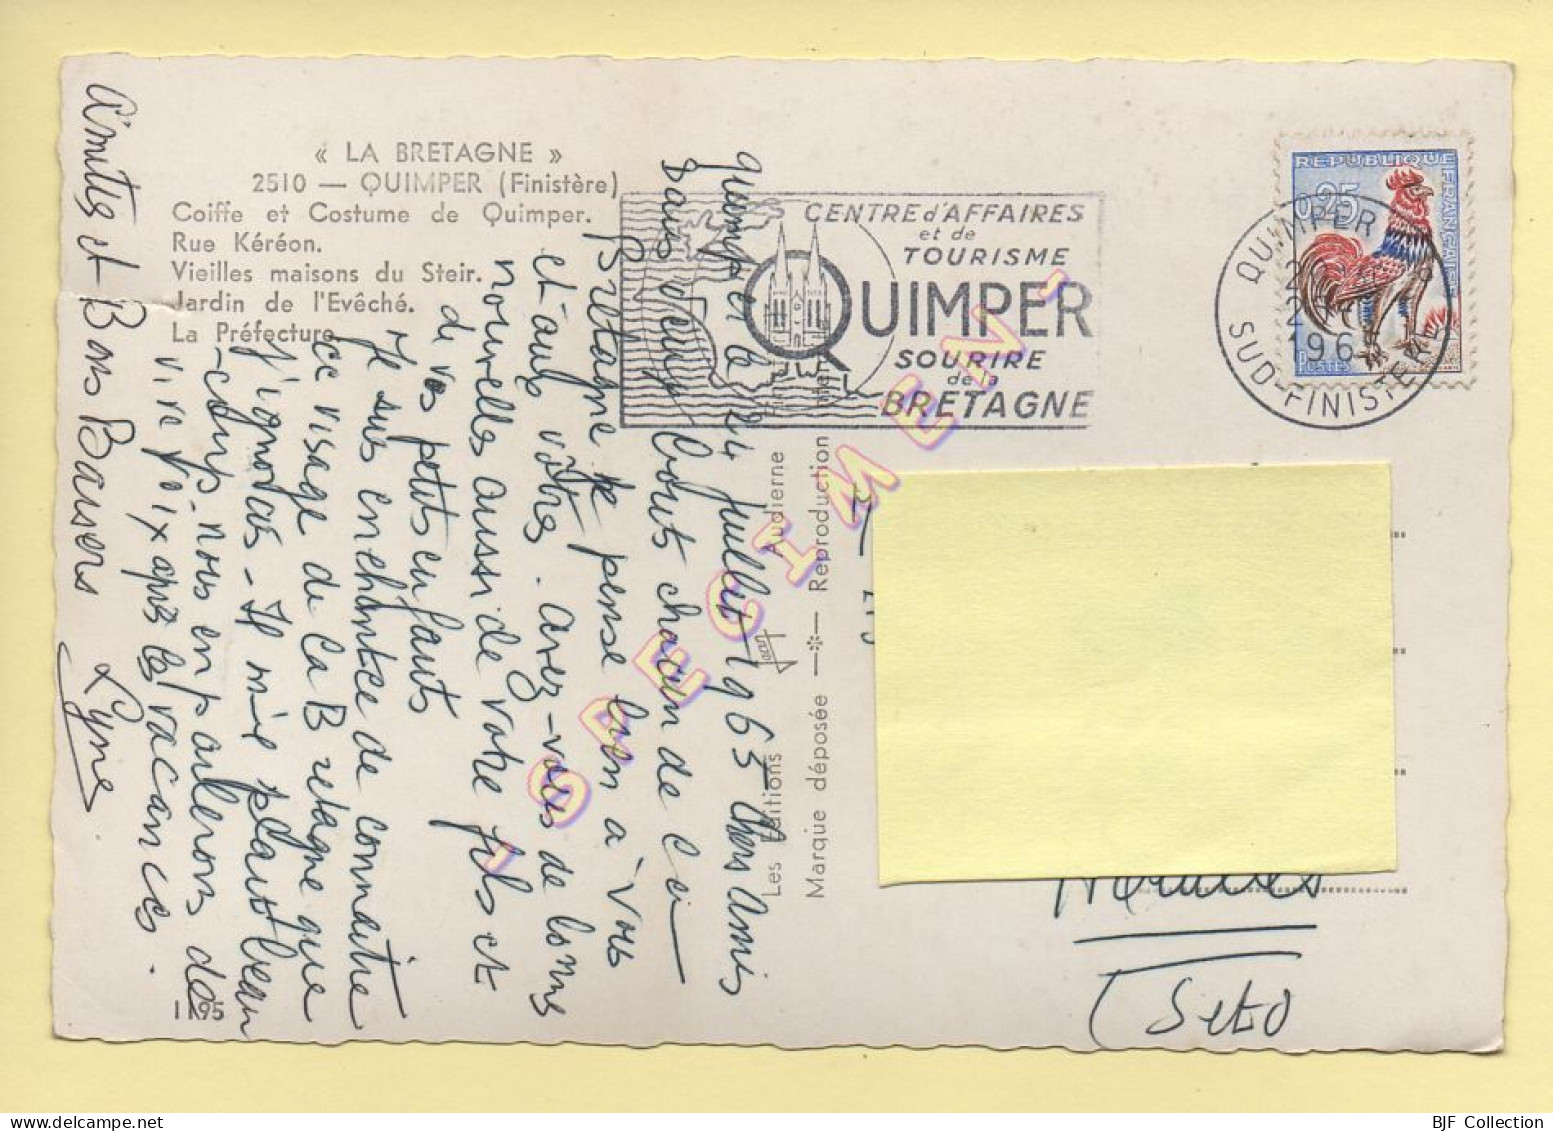 « LA BRETAGNE »
2510 — QUIMPER (Finistère)
Coiffe et Costume de Quimper.
Rue Kéréon.
Vieilles maisons du Steir.
Jardin de l'Evêché.
La Préfecture.
CENTRE d'AFFAIRES
et de
TOURISME
QUIMPER
SOURIRE
de la
BRETAGNE
REPUBLIQUE FRANCAISE
0,25
POSTES
QUIMPER
196
SUD-FINISTERE
Quimper le 24 juillet 1963 Chers Amis
Dans deux bouts chacun de la
Bretagne je pense bien à vous
et aux vôtres. avez-vous de bonnes
nouvelles aussi de votre fils et
de vos petits enfants
Je suis enchantée de connaître
ce visage de la Bretagne que
j'ignorais - Il m'a plu beau
-coup. nous en parlerons de
vive voix après les vacances.
Amitiés et Bons Baisers Lyne
Les Editions Jos Audierne
Marque déposée —※— Reproduction
- SPECIMEN -
(Set O
1195
BJF Collection